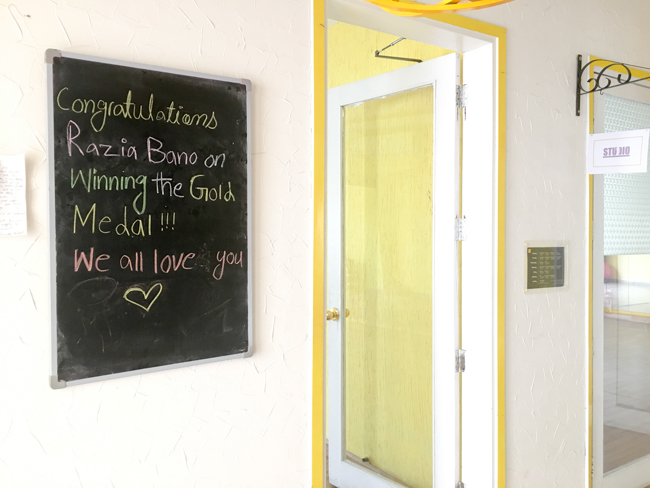 Congratulations
Razia Bano on
Winning the Gold
Medal!!!
We all love you
STUDIO